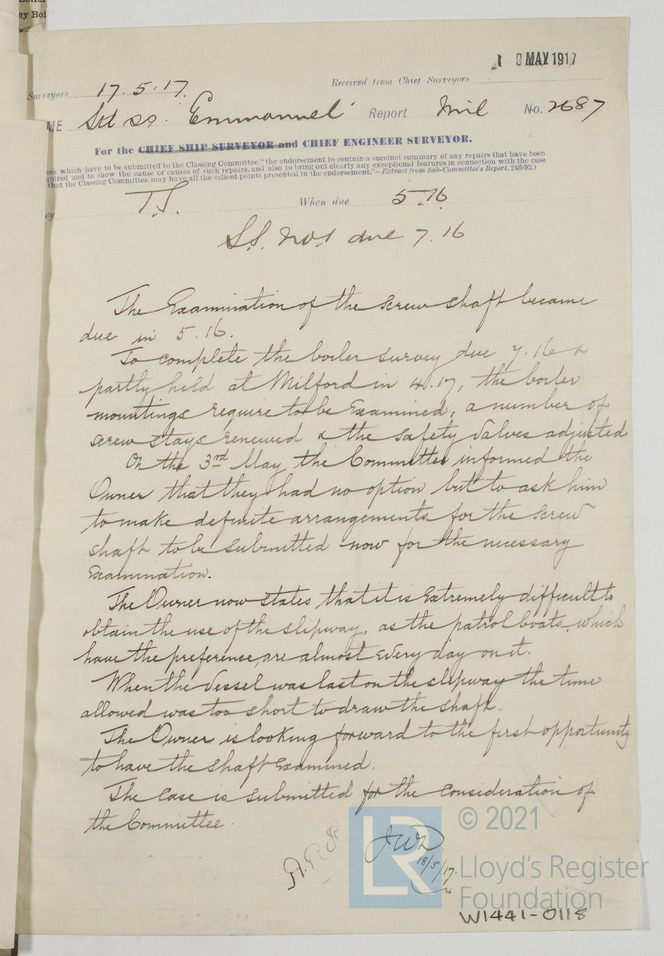 8 MAY 1917
Surveyors 17.5.17. Received from Chief Surveyors
ME Std ss. "Emmanuel" Report Mil No. 2687
For the CHIEF SHIP SURVEYOR and CHIEF ENGINEER SURVEYOR.
ces which have to be submitted to the Classing Committee "the endorsement to contain a succinct summary of any repairs that have been
quired and to show the cause or causes of such repairs, and also to bring out clearly any exceptional features in connection with the case
that the Classing Committee may have all the salient points presented in the endorsement."—Extract from Sub-Committee's Report, 24/5/92.)
T.S. When due 5.16
S.S. No1 due 7.16
The Examination of the screw shaft became
due in 5.16.
To complete the boiler survey due 7.16 &
partly held at Milford in 4.17, the boiler
mountings require to be Examined, a number of
screw stays renewed & the safety valves adjusted
On the 3rd May the Committee informed the
Owner that they had no option but to ask him
to make definite arrangements for the screw
shaft to be submitted now for the necessary
Examination.
The Owner now states that it is Extremely difficult to
obtain the use of the slipway, as the patrol boats, which
have the preference, are almost Every day on it.
When the Vessel was last on the slipway the time
allowed was too short to draw the shaft.
The Owner is looking forward to the first opportunity
to have the shaft Examined.
The case is submitted for the consideration of
the Committee.
18/5/17.
LR
© 2021
Lloyd's Register
Foundation
W1441-0118